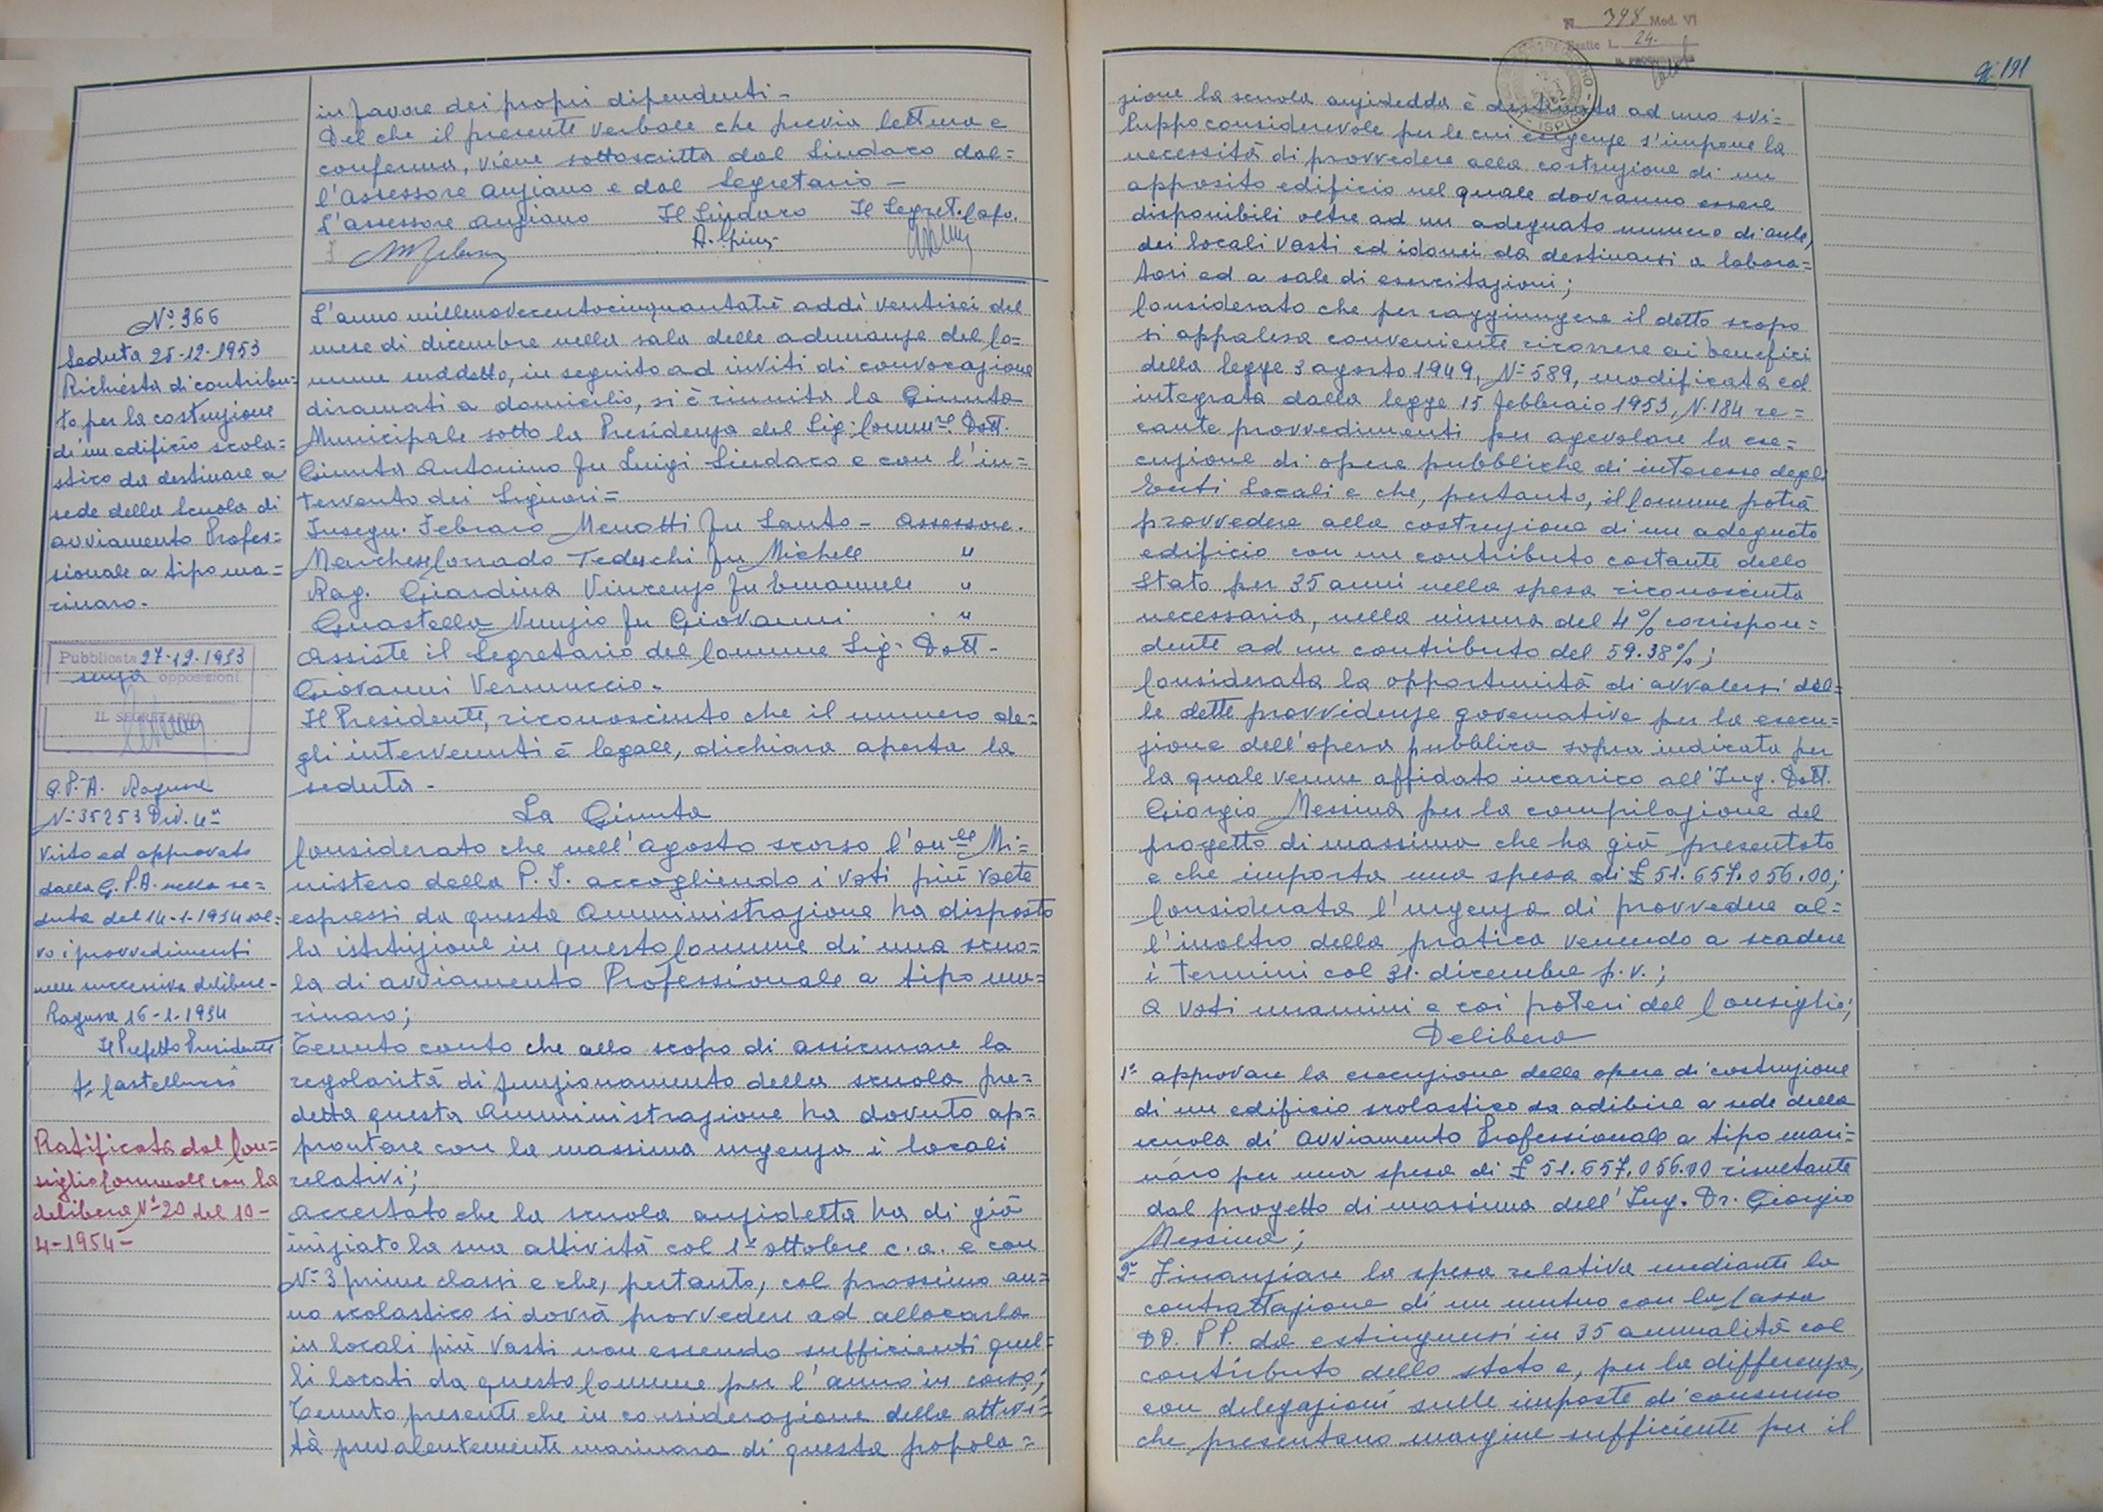 in favore dei propri dipendenti -
Del che il presente verbale che previa lettura e
conferma, viene sottoscritto dal Sindaco dal=
l'Assessore anziano e dal Segretario -
L'assessore anziano Il Sindaco Il Segret. Capo.
N° 366
Seduta 25-12-1953
Richiesta di contribu=
to per la costruzione
di un edificio scola=
stico da destinare a
sede della Scuola di
avviamento Profes=
sionale a tipo ma=
rinaro.
Pubblicata 27-12-1953
senza opposizioni
IL SEGRETARIO
G.P.A. Ragusa
N. 35253 Div. 4ª
Visto ed approvato
dalla G.P.A. nella se=
duta del 14-1-1954 sal=
vo i provvedimenti
nella successiva delibera -
Ragusa 16-1-1954
Il Prefetto Presidente
F. Castellucci
Ratificata dal Con=
siglio Comunale con la
delibera N° 20 del 10-
4-1954 -
L'anno millenovecentocinquantatrè addì ventisei del
mese di dicembre nella sala delle adunanze del Co=
mune suddetto, in seguito ad inviti di convocazione
diramati a domicilio, si è riunita la Giunta
Municipale sotto la Presidenza del Sig. Comm.re Dott.
Giunta Antonino fu Luigi Sindaco e con l'in=
tervento dei Signori =
Insegn. Febraro Menotti fu Santo - Assessore.
Marchese Corrado Tedeschi fu Michele "
Rag. Giardina Vincenzo fu Emanuele "
Guastella Nunzio fu Giovanni "
Assiste il Segretario del Comune Sig. Dott.
Giovanni Vernuccio.
Il Presidente, riconosciuto che il numero de=
gli intervenuti è legale, dichiara aperta la
seduta -
La Giunta
Considerato che nell'agosto scorso l'on.le Mi=
nistero della P. I. accogliendo i voti più volte
espressi da questa Amministrazione ha disposto
la istituzione in questo Comune di una scuo=
la di avviamento Professionale a tipo ma=
rinaro;
Tenuto conto che allo scopo di assicurare la
regolarità di funzionamento della scuola pre=
detta questa Amministrazione ha dovuto ap=
prontare con la massima urgenza i locali
relativi;
Accertato che la scuola anzidetta ha di già
iniziato la sua attività col 1° ottobre c.a. e con
N. 3 prime classi e che, pertanto, col prossimo an=
no scolastico si dovrà provvedere ad allocarla
in locali più vasti non essendo sufficienti quel=
li locati da questo Comune per l'anno in corso;
Tenuto presente che in considerazione della attivi=
tà prevalentemente marinara di questa popola=
N. 398 Mod. VI
Esatte L. 24.
191
zione la scuola anzidedda è destinata ad uno svi=
luppo considerevole per le cui esigenze s'impone la
necessità di provvedere alla costruzione di un
apposito edificio nel quale dovranno essere
disponibili oltre ad un adeguato numero di aule,
dei locali vasti ed idonei da destinarsi a labora=
tori ed a sale di esercitazioni;
Considerato che per raggiungere il detto scopo
si appalesa conveniente ricorrere ai benefici
della legge 3 agosto 1949, N. 589, modificata ed
integrata dalla legge 15 febbraio 1953, N. 184 re=
cante provvedimenti per agevolare la ese=
cuzione di opere pubbliche di interesse degli
Enti Locali e che, pertanto, il Comune potrà
provvedere alla costruzione di un adeguato
edificio con un contributo costante dello
Stato per 35 anni nella spesa riconosciuta
necessaria, nella misura del 4% corrispon=
dente ad un contributo del 59.38%;
Considerata la opportunità di avvalersi del=
le dette provvidenze governative per la esecu=
zione dell'opera pubblica sopra indicata per
la quale venne affidato incarico all'Ing. Dott.
Giorgio Messina per la compilazione del
progetto di massima che ha già presentato
e che importa una spesa di £ 51.657.056.00;
Considerata l'urgenza di provvedere al=
l'inoltro della pratica venendo a scadere
i termini col 31. dicembre p.v.;
A voti unanimi e coi poteri del Consiglio;
Delibera
1° approvare la esecuzione delle opere di costruzione
di un edificio scolastico da adibire a sede della
scuola di Avviamento Professionale a tipo mari=
naro per una spesa di £ 51.657.056.00 risultante
dal progetto di massima dell'Ing. Dr. Giorgio
Messina;
2° Finanziare la spesa relativa mediante la
contrattazione di un mutuo con la Cassa
DD. PP. da estinguersi in 35 annualità col
contributo dello stato e, per la differenza,
con delegazioni sulle imposte di consumo
che presentano margine sufficiente per il